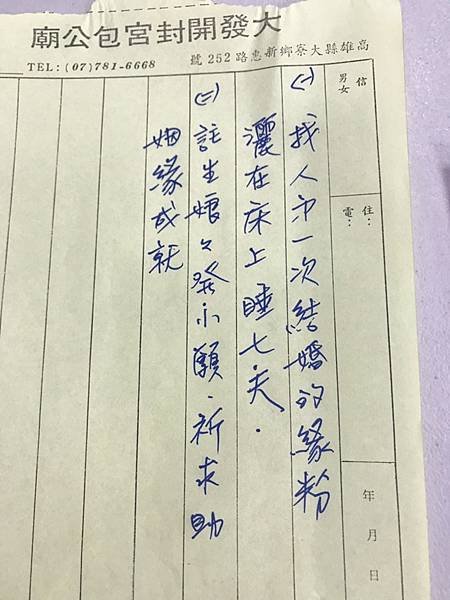 大發開封宮包公廟
高雄縣大寮鄉新惠路 252 號
TEL: (07)781-6668
信男女
住：
電：
年月日
(一) 找人第一次結婚的緣粉
灑在床上睡七天.
(二) 註生娘々發小願、祈求助
姻緣成就